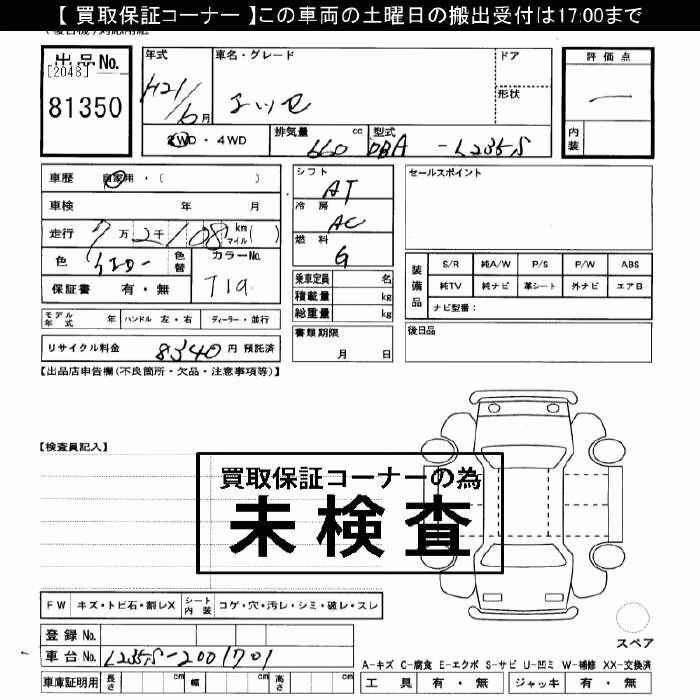 【 買取保証コーナー 】この車両の土曜日の搬出受付は17:00まで
出品No.
[2048]
81350
年式
H21/6月
車名・グレード
エッセ
ドア
形状
評価点
一
内装
2WD・4WD
排気量
660 cc
型式
DBA-L235S
車歴 自家用・( )
車検 年 月
走行 7万2千108 km マイル( )
色 イエロー
色替
カラーNo.
保証書 有・無
シフト
AT
冷房
AC
燃料
G
セールスポイント
装備品
S/R 純A/W P/S P/W ABS
純TV 純ナビ 革シート 外ナビ エアB
ナビ型番:
乗車定員 名
積載量 kg
総重量 kg
モデル年式 年 ハンドル 左・右 ディーラー・並行
書類期限
月 日
後日品
リサイクル料金 8340 円 預託済
【出品店申告欄(不良箇所・欠品・注意事項等)】
【検査員記入】
買取保証コーナーの為
未検査
FW キズ・トビ石・割レX
シート内装 コゲ・穴・汚レ・シミ・破レ・スレ
登録No.
車台No. L235S-2001701
車庫証明用 長さ cm 幅 cm 高さ cm
スペア
A-キズ C-腐食 E-エクボ S-サビ U-凹ミ W-補修 XX-交換済
工具 有・無 ジャッキ 有・無